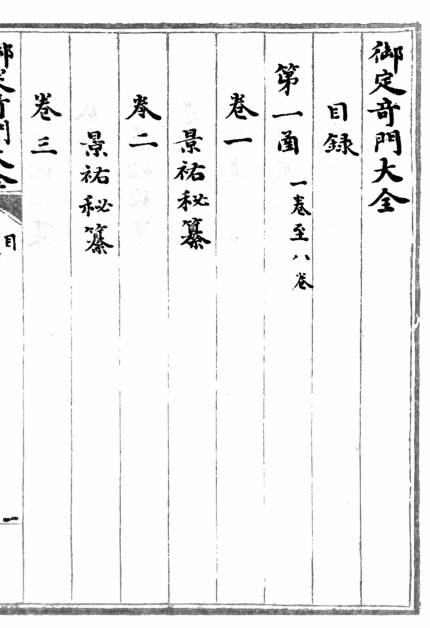 御定奇門大全
目録
第一函 一卷至八卷
卷一
景祐秘纂
卷二
景祐秘纂
卷三
御定奇門大全
目
一